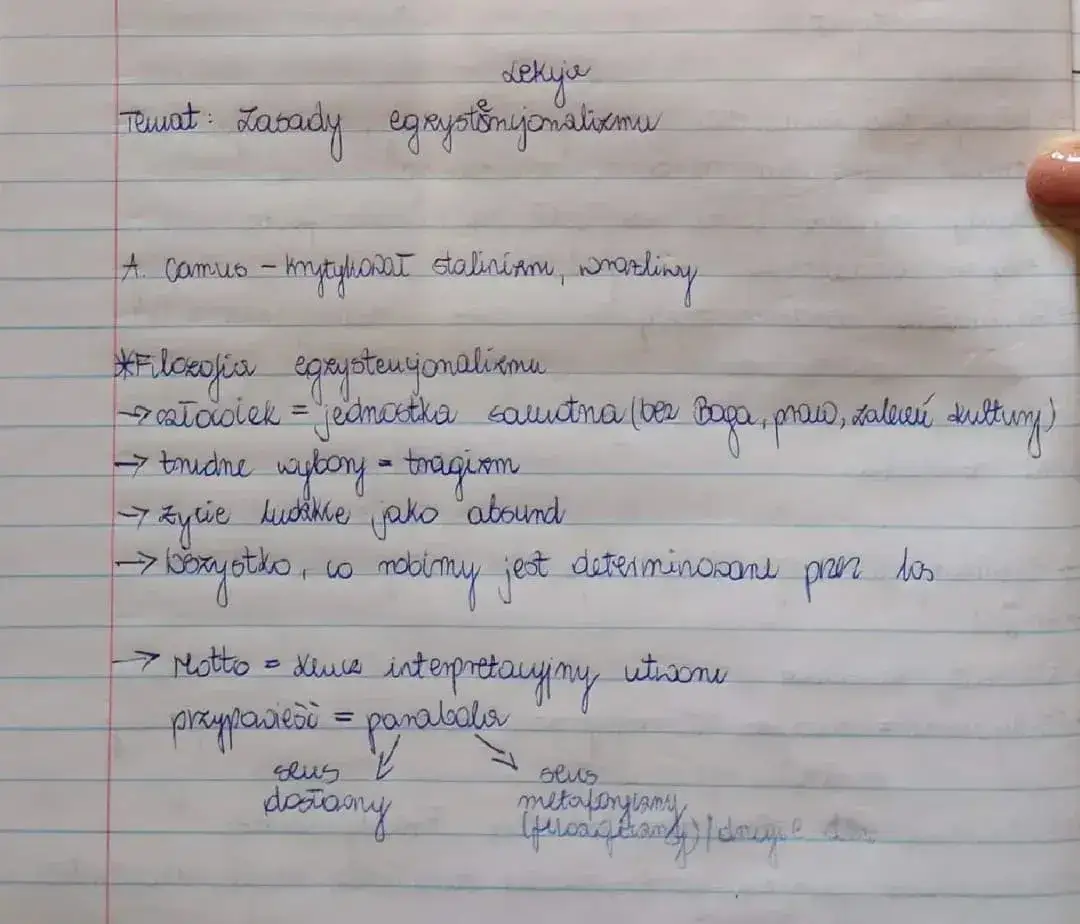 Lekcja
Temat: Zasady egzystencjonalizmu
A. Camus - krytykował stalinizm, wrażliwy
*Filozofia egzystencjonalizmu
→ człowiek = jednostka samotna (bez Boga, praw, zaleceń kultury)
→ trudne wybory = tragizm
→ życie ludzkie jako absurd
→ Wszystko, co robimy jest determinowane przez los
→ Motto = klucz interpretacyjny utworu
przypowieść = parabola
sens
dosłowny
sens
metaforyczny
(filozoficzny) / drugie